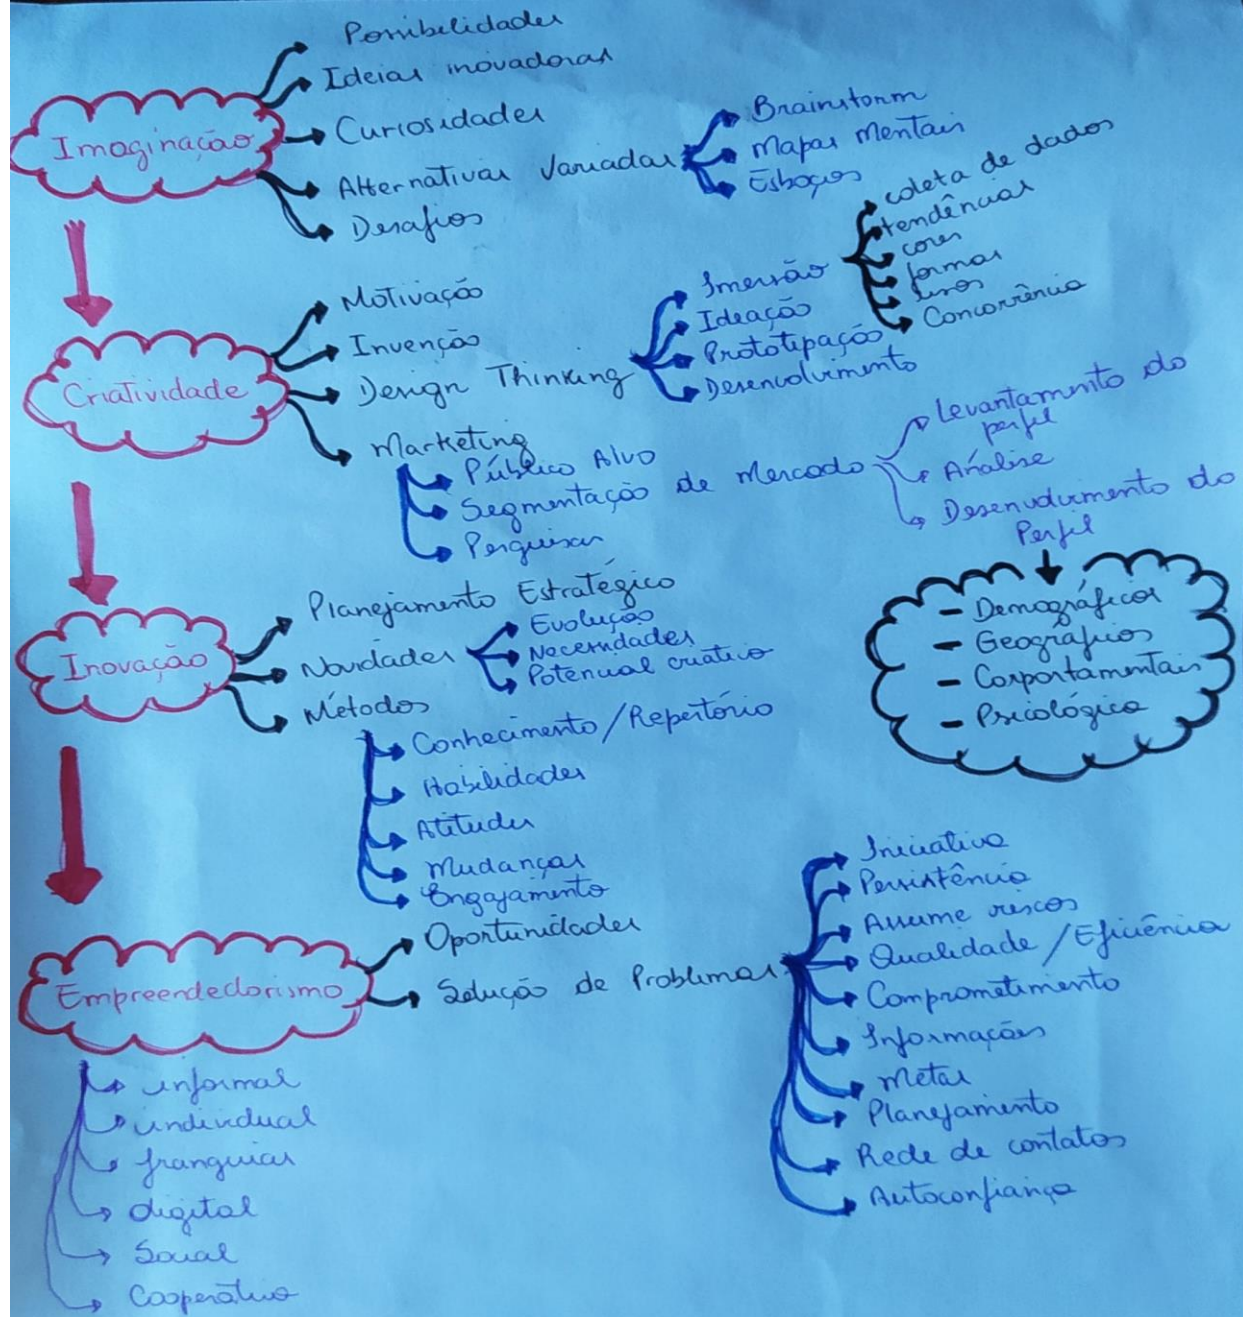 Possibilidades
Ideias inovadoras
Imaginação
Curiosidades
Alternativas Variadas
Brainstorm
Mapas Mentais
Esboços
Desafios
Motivação
Invenção
Criatividade
Design Thinking
Imersão
coleta de dados
tendências
cores
formas
usos
Concorrência
Ideação
Prototipação
Desenvolvimento
Marketing
Público Alvo
Segmentação de Mercado
Levantamento do
perfil
Análise
Desenvolvimento do
Perfil
- Demográficos
- Geográfios
- Comportamentais
- Psicológico
Pesquisas
Inovação
Planejamento Estratégico
Novidades
Evolução
Necessidades
Potencial criativo
Métodos
Conhecimento/Repertório
Habilidades
Atitudes
Mudanças
Engajamento
Empreendedorismo
Oportunidades
Solução de Problemas
Iniciativa
Persistência
Assume riscos
Qualidade/Eficiência
Comprometimento
Informações
Metas
Planejamento
Rede de contatos
Autoconfiança
informal
individual
franquias
digital
Social
Cooperativo